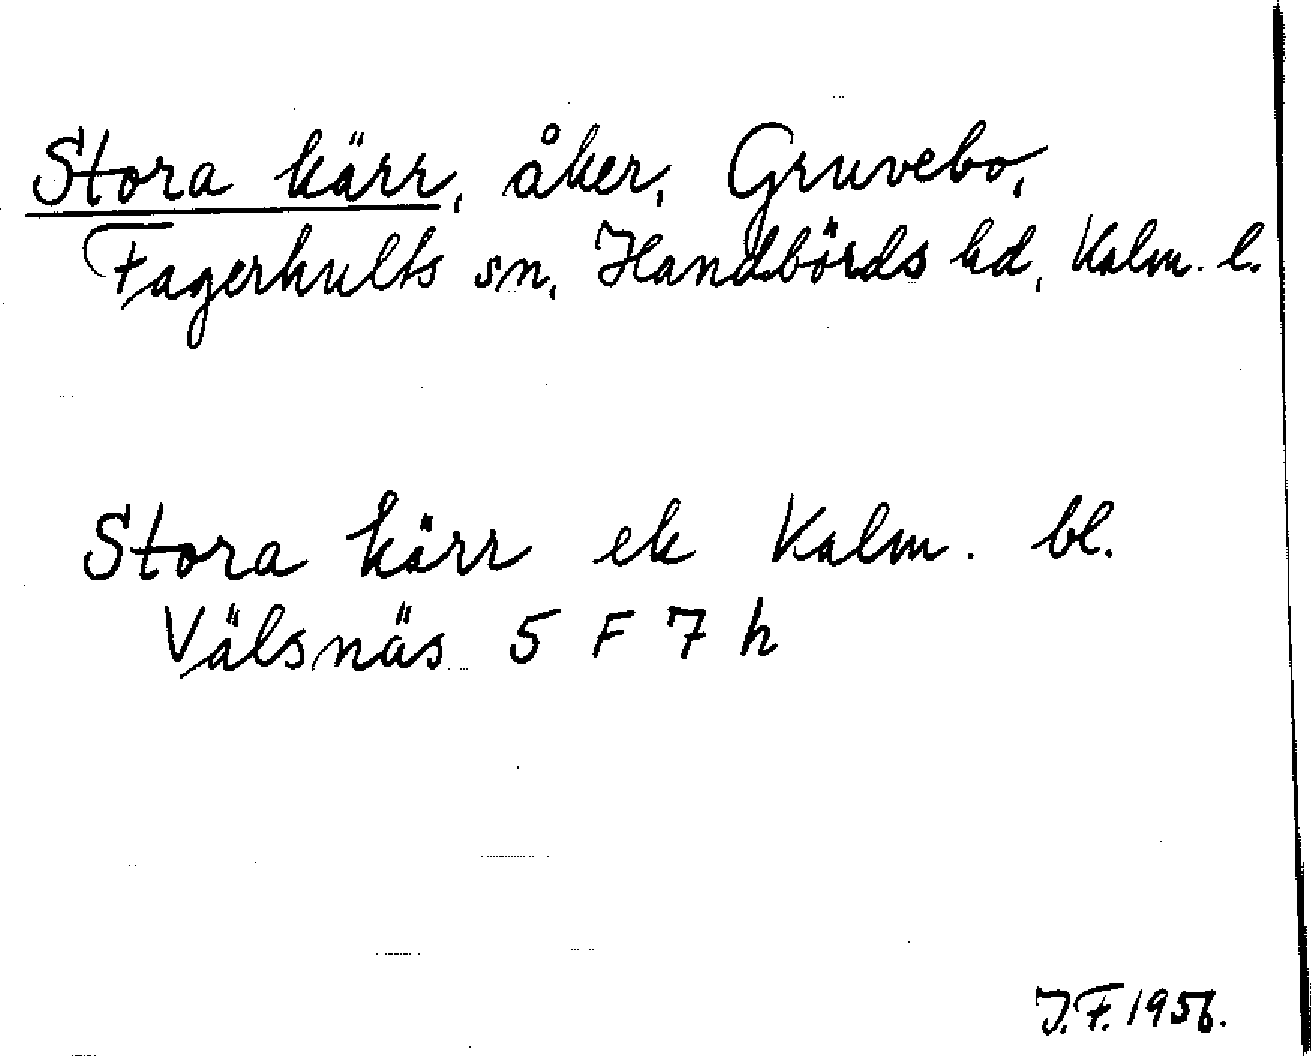 Stora kärr, åker, Gruvebo,
Fagerhults sn, Handbörds hd, Kalm. l.
Stora kärr ek Kalm. bl.
Välsnäs 5 F 7 h
J.F. 1956.